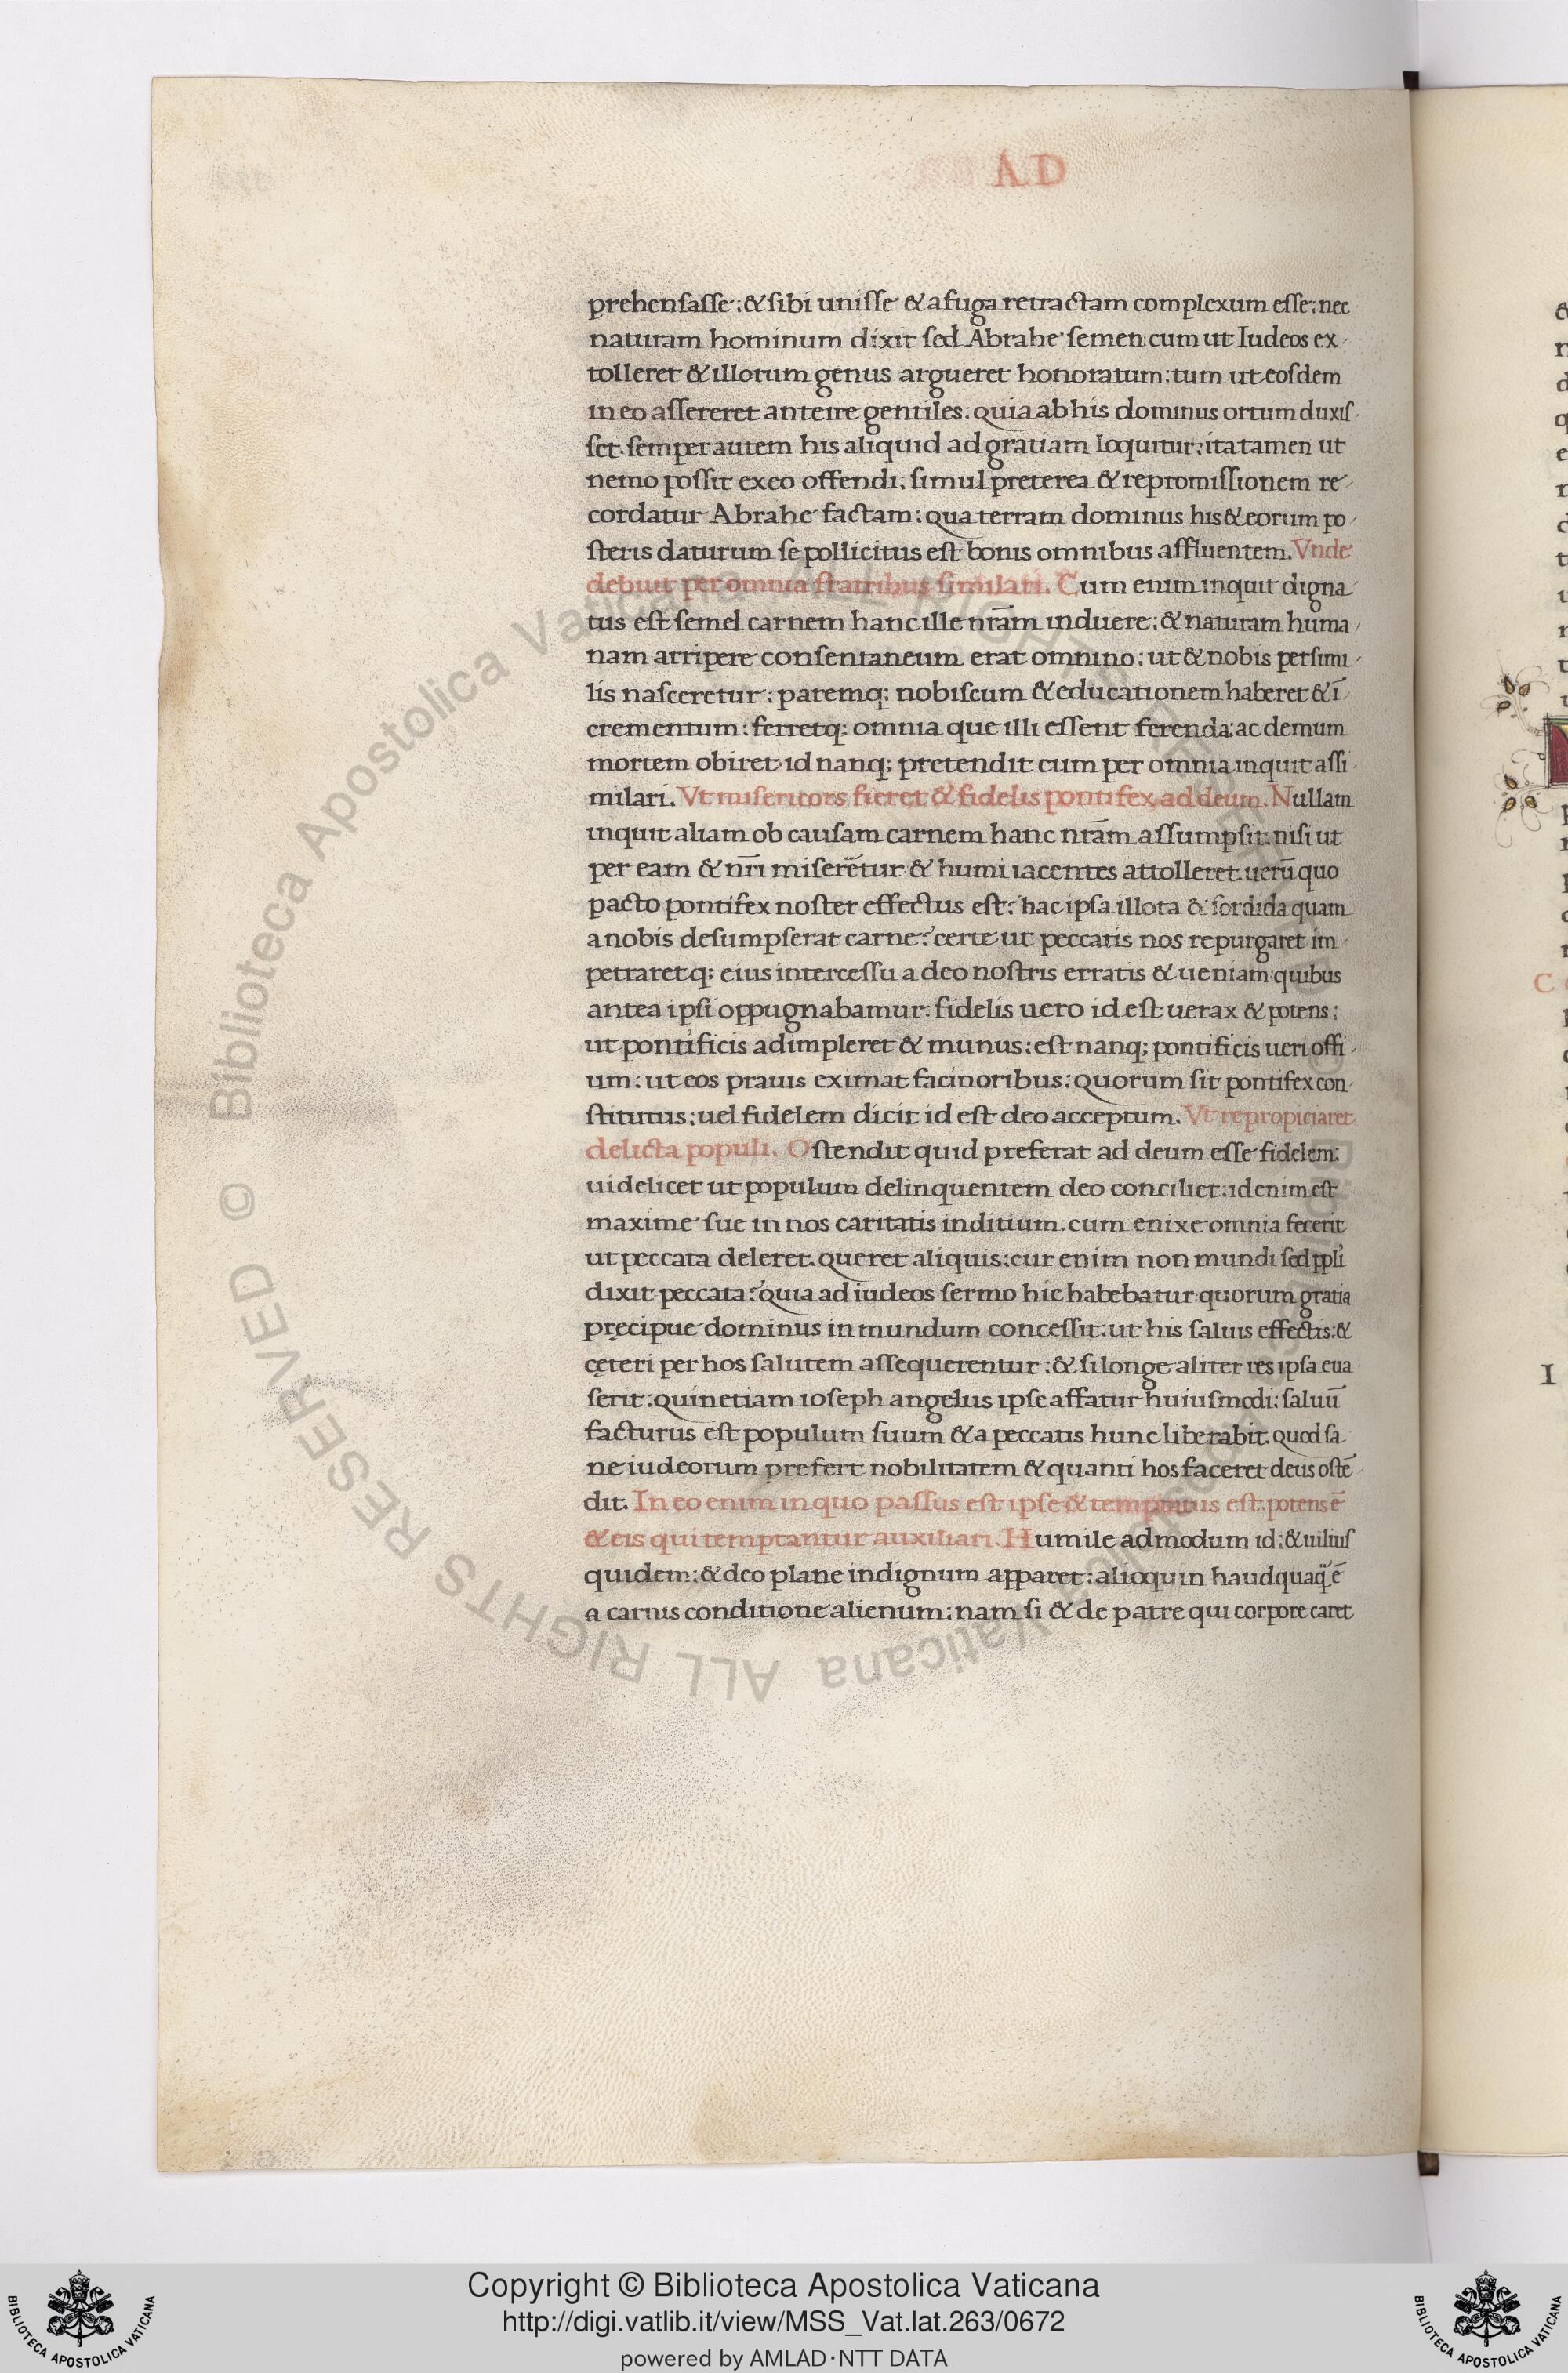 AD
prehensasse: & sibi unisse & a fuga retractam complexum esse: nec
naturam hominum dixit sed Abrahe semen: cum ut Iudeos ex-
tolleret & illorum genus argueret honoratum: tum ut eosdem
in eo assereret anteire gentiles: quia ab his dominus ortum duxis-
set. semper autem his aliquid ad gratiam loquitur: ita tamen ut
nemo possit ex eo offendi. simul preterea & repromissionem re-
cordatur Abrahe factam: qua terram dominus his & eorum po-
steris daturum se pollicitus est bonis omnibus affluentem. Vnde
debuit per omnia fratribus similari. Cum enim inquit digna-
tus est semel carnem hanc ille nr̄am induere: & naturam huma-
nam arripere consentaneum erat omnino: ut & nobis persimi-
lis nasceretur: paremq; nobiscum & educationem haberet & ī-
crementum: ferretq; omnia que illi essent ferenda: ac demum
mortem obiret. id nanq; pretendit cum per omnia inquit assi-
milari. Vt misericors fieret & fidelis pontifex ad deum. Nullam
inquit aliam ob causam carnem hanc nr̄am assumpsit: nisi ut
per eam & nr̄i miserētur & humi iacentes attolleret. uerū quo
pacto pontifex noster effectus est? hac ipsa illota & sordida quam
a nobis desumpserat carne? certe ut peccatis nos repurgaret im-
petraretq; eius intercessu a deo nostris erratis & ueniam: quibus
antea ipsi oppugnabamur. fidelis uero id est uerax & potens:
ut pontificis adimpleret & munus: est nanq; pontificis ueri offi-
um: ut eos prauis eximat facinoribus: quorum sit pontifex con-
stitutus: uel fidelem dicit id est deo acceptum. Vt repropiciaret
delicta populi. Ostendit quid preferat ad deum esse fidelem:
uidelicet ut populum delinquentem deo conciliet: id enim est
maxime sue in nos caritatis inditium: cum enixe omnia fecerit
ut peccata deleret. queret aliquis: cur enim non mundi sed ppl̄i
dixit peccata? quia ad iudeos sermo hic habebatur quorum gratia
pręcipue dominus in mundum concessit: ut his saluis effectis: &
cęteri per hos salutem assequerentur: & si longe aliter res ipsa eua-
serit: quin etiam ioseph angelus ipse affatur huiusmodi: saluū
facturus est populum suum & a peccatis hunc liberabit. quod sa-
ne iudeorum prefert nobilitatem & quanti hos faceret deus ostē-
dit. In eo enim in quo passus est ipse & temptatus est: potens ē
& eis qui temptantur auxiliari. Humile admodum id: & uilius
quidem: & deo plane indignum apparet: alioquin haudquaq̄ ē
a carnis conditione alienum: nam si & de patre qui corpore caret
C
I
© Biblioteca Apostolica Vaticana ALL RIGHTS RESERVED
Copyright © Biblioteca Apostolica Vaticana
http://digi.vatlib.it/view/MSS_Vat.lat.263/0672
powered by AMLAD·NTT DATA
BIBLIOTECA APOSTOLICA VATICANA
BIBLIOTECA APOSTOLICA VATICANA